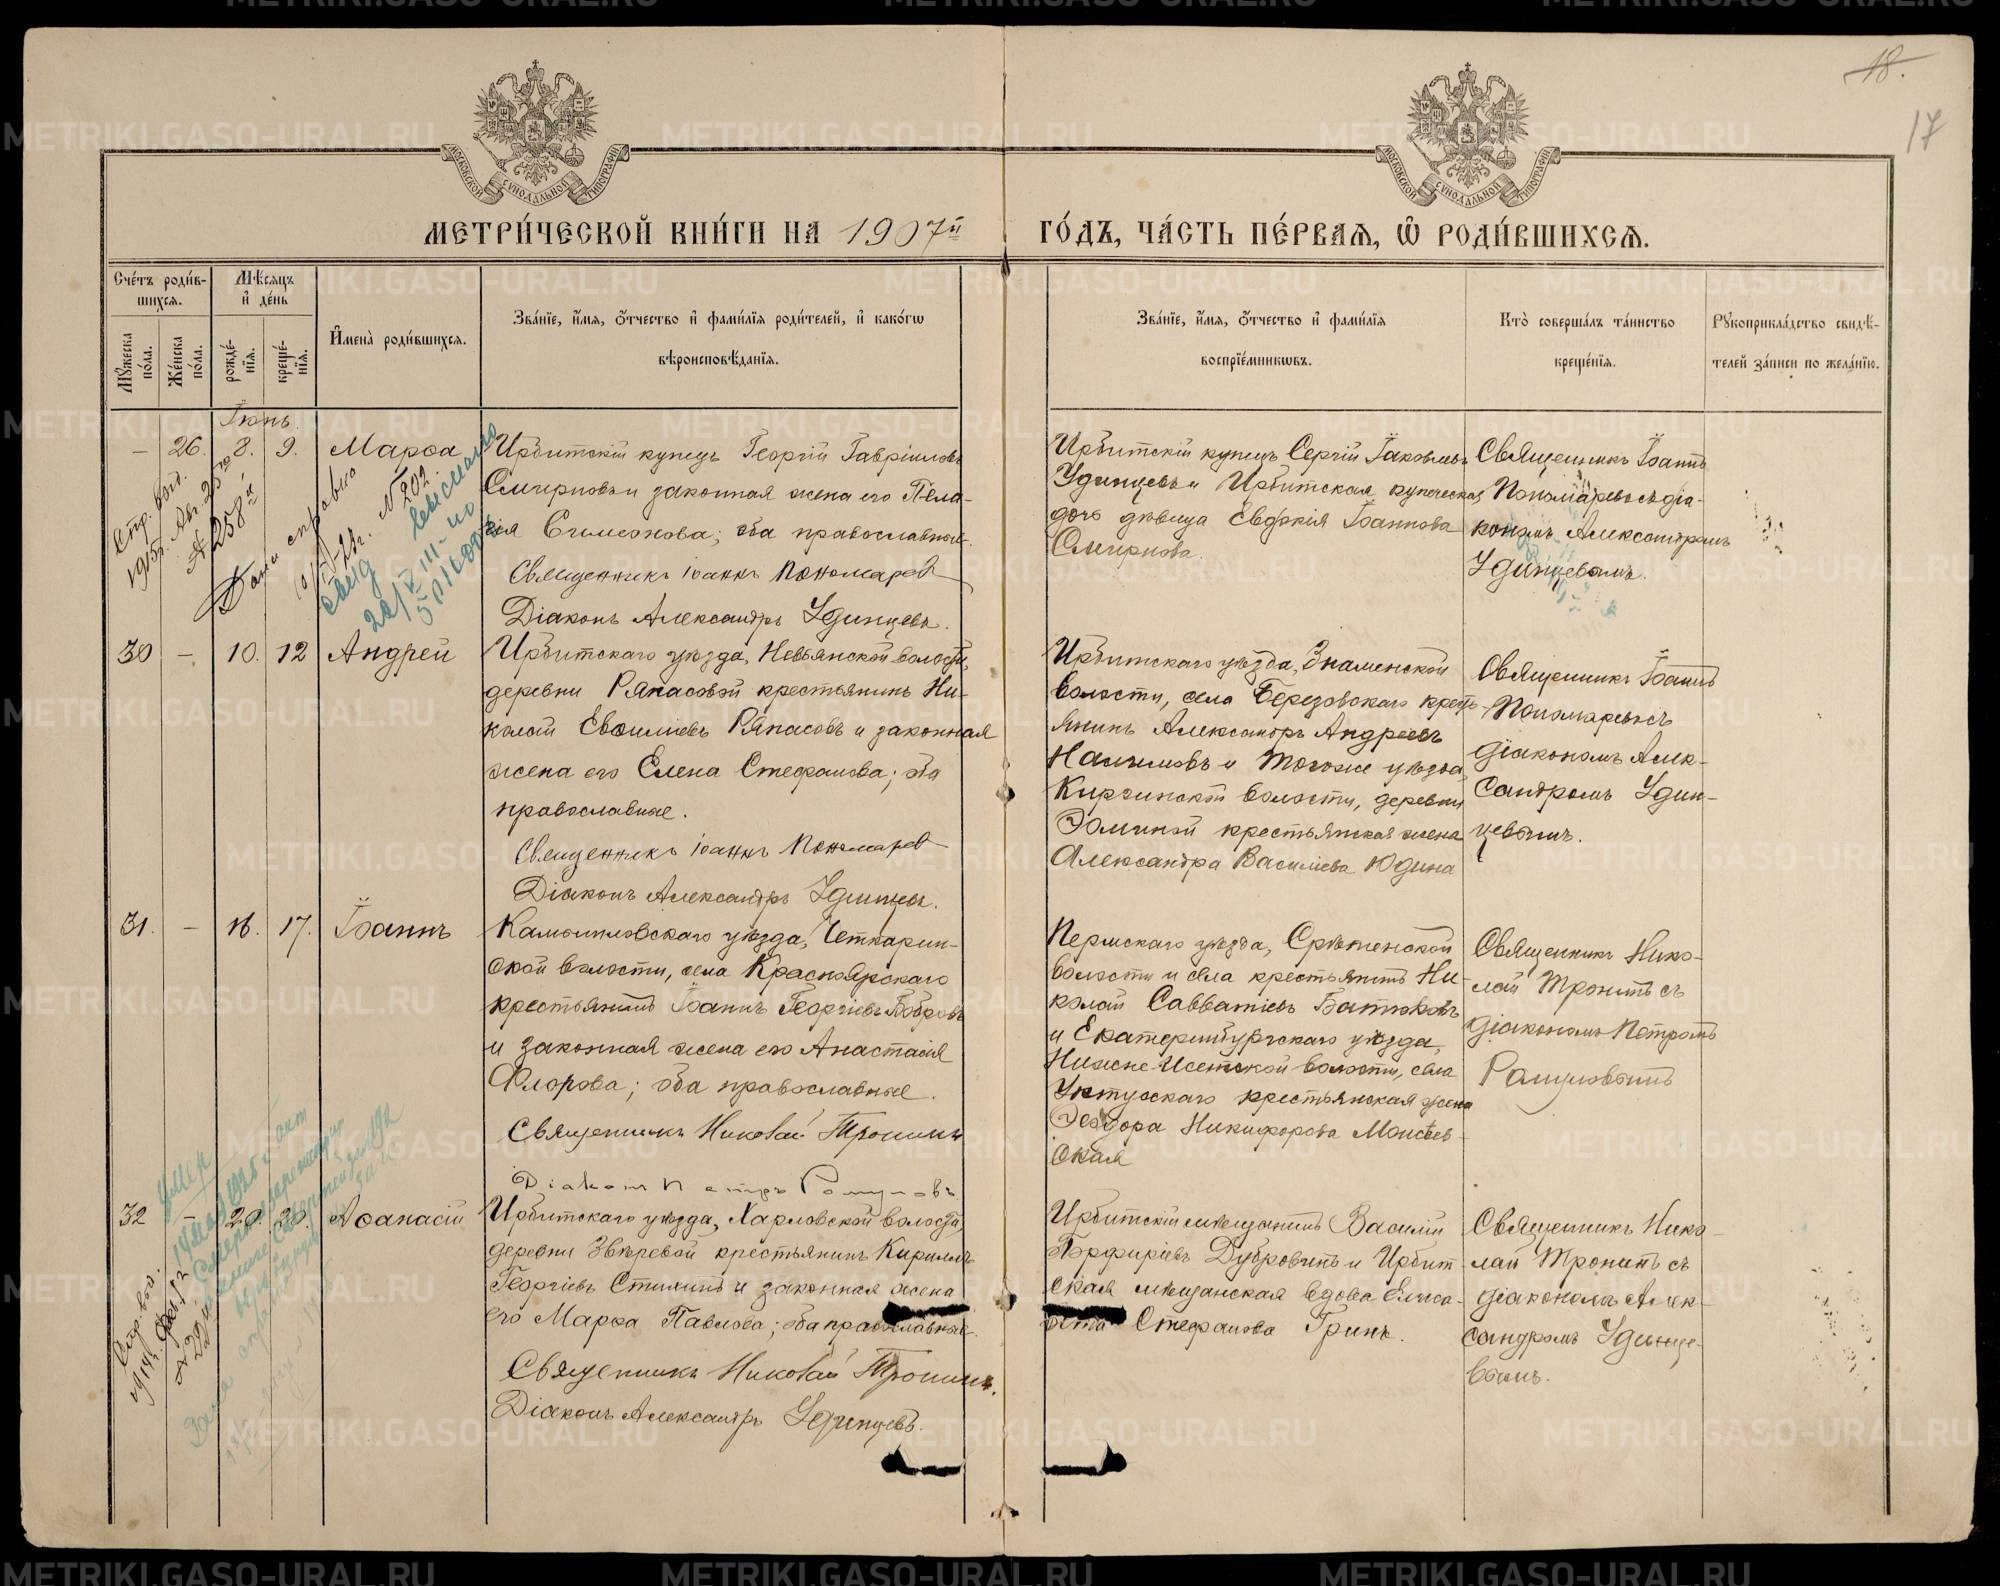 18.
17
МОСКОВСКОЙ СУНОДАЛЬНОЙ ТИПОГРАФІИ
МОСКОВСКОЙ СУНОДАЛЬНОЙ ТИПОГРАФІИ
МЕТРИ́ЧЕСКОЙ КНИ́ГИ НА 1907й
ГО́ДЪ, ЧА́СТЬ ПЕ́РВАѦ, Ѡ РОДИ́ВШИХСѦ.
Сче́тъ роди́в-
шихсѧ.
Мѣ́сѧцъ
и҆ де́нь
Мꙋжеска по́ла.
Же́нска по́ла.
рожде́нїѧ.
креще́нїѧ.
И҆мена̀ роди́вшихсѧ.
Зва́нїе, и҆́мѧ, ѻ҆́тчество и҆ фами́лїѧ роди́телей, и҆ како́гѡ
вѣроисповѣ́данїѧ.
Зва́нїе, и҆́мѧ, ѻ҆́тчество и҆ фами́лїѧ
воспрїе́мникѡвъ.
Кто̀ соверша́лъ та́инство
креще́нїѧ.
Рꙋкоприкла́дство свидѣ́-
телей за́писи по жела́нїю.
Іюнь.
– 26. 8. 9. Марѳа
Ирбитскій купецъ Георгій Гавріиловъ
Смирновъ и законная жена его Пела-
гія Симеонова; оба православные.
Священникъ Іоаннъ Пономарев
Діаконъ Александръ Удинцевъ.
Ирбитскій купецъ Сергій Іаковлевъ
Удинцевъ и Ирбитская купеческая
дочь дѣвица Евдокія Іоаннова
Смирнова.
Священникъ Іоаннъ
Пономаревъ съ діа-
кономъ Александромъ
Удинцевымъ.
Стр. вог.
1915г. Авг. 25го
№ 258й
Дана справка
№ 202.
30 – 10. 12 Андрей
Ирбитскаго уѣзда, Невьянской волости,
деревни Ряпасовой крестьянинъ Ни-
колай Евѳиміевъ Ряпасовъ и законная
жена его Елена Стефанова; оба
православные.
Священникъ Іоаннъ Пономарев
Діаконъ Александръ Удинцевъ.
Ирбитскаго уѣзда, Знаменской
волости, села Березовскаго кресть-
янинъ Александръ Андреевъ
Налимовъ и того же уѣзда,
Киргинской волости, деревни
Зоминой крестьянская жена
Александра Василіева Юдина
Священникъ Іоаннъ
Пономаревъ съ
діакономъ Алек-
сандромъ Удин-
цевымъ.
31. – 16. 17. Іоаннъ
Камышловскаго уѣзда, Четкарин-
ской волости, села Красноярскаго
крестьянинъ Іоаннъ Георгіевъ Бобровъ
и законная жена его Анастасія
Флорова; оба православные.
Священникъ Николай Тронинъ
Діаконъ Петръ Ромуловъ
Пермскаго уѣзда, Срѣтенской
волости и села крестьянинъ Ни-
колай Савватіевъ Батюковъ
и Екатеринбургскаго уѣзда,
Нижне-Исетской волости, села
Уктусскаго крестьянская жена
Ѳеодора Никифорова Моисеев-
ская
Священникъ Нико-
лай Тронинъ съ
діакономъ Петромъ
Ромуловымъ
32 – 20. 20. Аѳанасій
Ирбитскаго уѣзда, Харловской волости,
деревни Звѣревой крестьянинъ Кириллъ
Георгіевъ Стихинъ и законная жена
его Марѳа Павлова; оба православные.
Священникъ Николай Тронинъ.
Діаконъ Александръ Удинцевъ.
Ирбитскій мѣщанинъ Василій
Порфиріевъ Дубровинъ и Ирбит-
ская мѣщанская вдова Елиса-
Стефанова Гринъ.
Священникъ Нико-
лай Тронинъ съ
діакономъ Алек-
сандромъ Удинце-
вымъ.
умер
Стр. вог.
METRIKI.GASO-URAL.RU